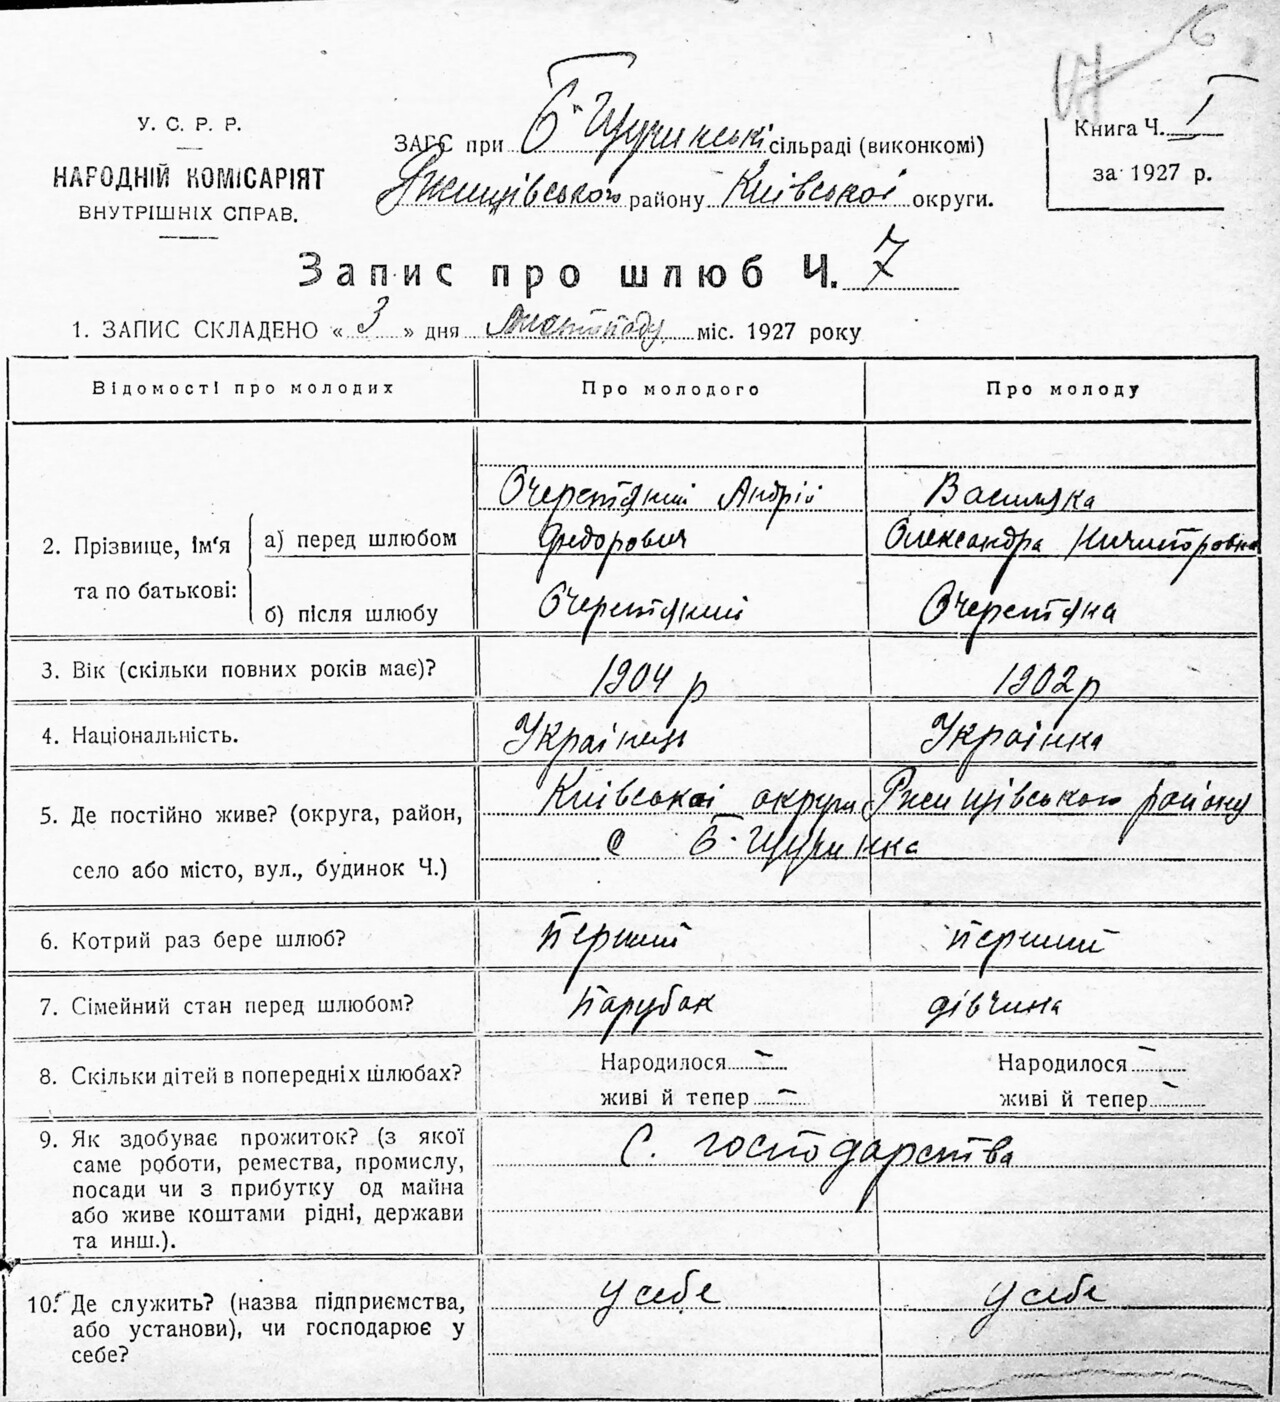 6
У. С. Р. Р.
НАРОДНІЙ КОМІСАРІЯТ
ВНУТРІШНІХ СПРАВ.
ЗАГС при Б-Щучинські сільраді (виконкомі)
Ржищівського району Київської округи.
Книга Ч. I
за 1927 р.
Запис про шлюб Ч. 7
1. ЗАПИС СКЛАДЕНО «3» дня листопаду міс. 1927 року
Відомості про молодих Про молодого Про молоду
2. Прізвище, ім'я та по батькові:
а) перед шлюбом
Очеретяний Андрій
Федорович
Василяка
Олександра Ничипоровна
б) після шлюбу
Очеретяний
Очеретяна
3. Вік (скільки повних років має)? 1904 р 1902 р
4. Національність. Українець Українка
5. Де постійно живе? (округа, район,
село або місто, вул., будинок Ч.)
Київської округи Ржищівського району
с Б-Щучинка
6. Котрий раз бере шлюб? Перший перший
7. Сімейний стан перед шлюбом? Парубок дівчина
8. Скільки дітей в попередніх шлюбах?
Народилося —
живі й тепер —
Народилося —
живі й тепер —
9. Як здобуває прожиток? (з якої
саме роботи, ремества, промислу,
посади чи з прибутку од майна
або живе коштами рідні, держави
та инш.).
С. господарства
10. Де служить? (назва підприємства,
або установи), чи господарює у
себе?
у себе
у себе